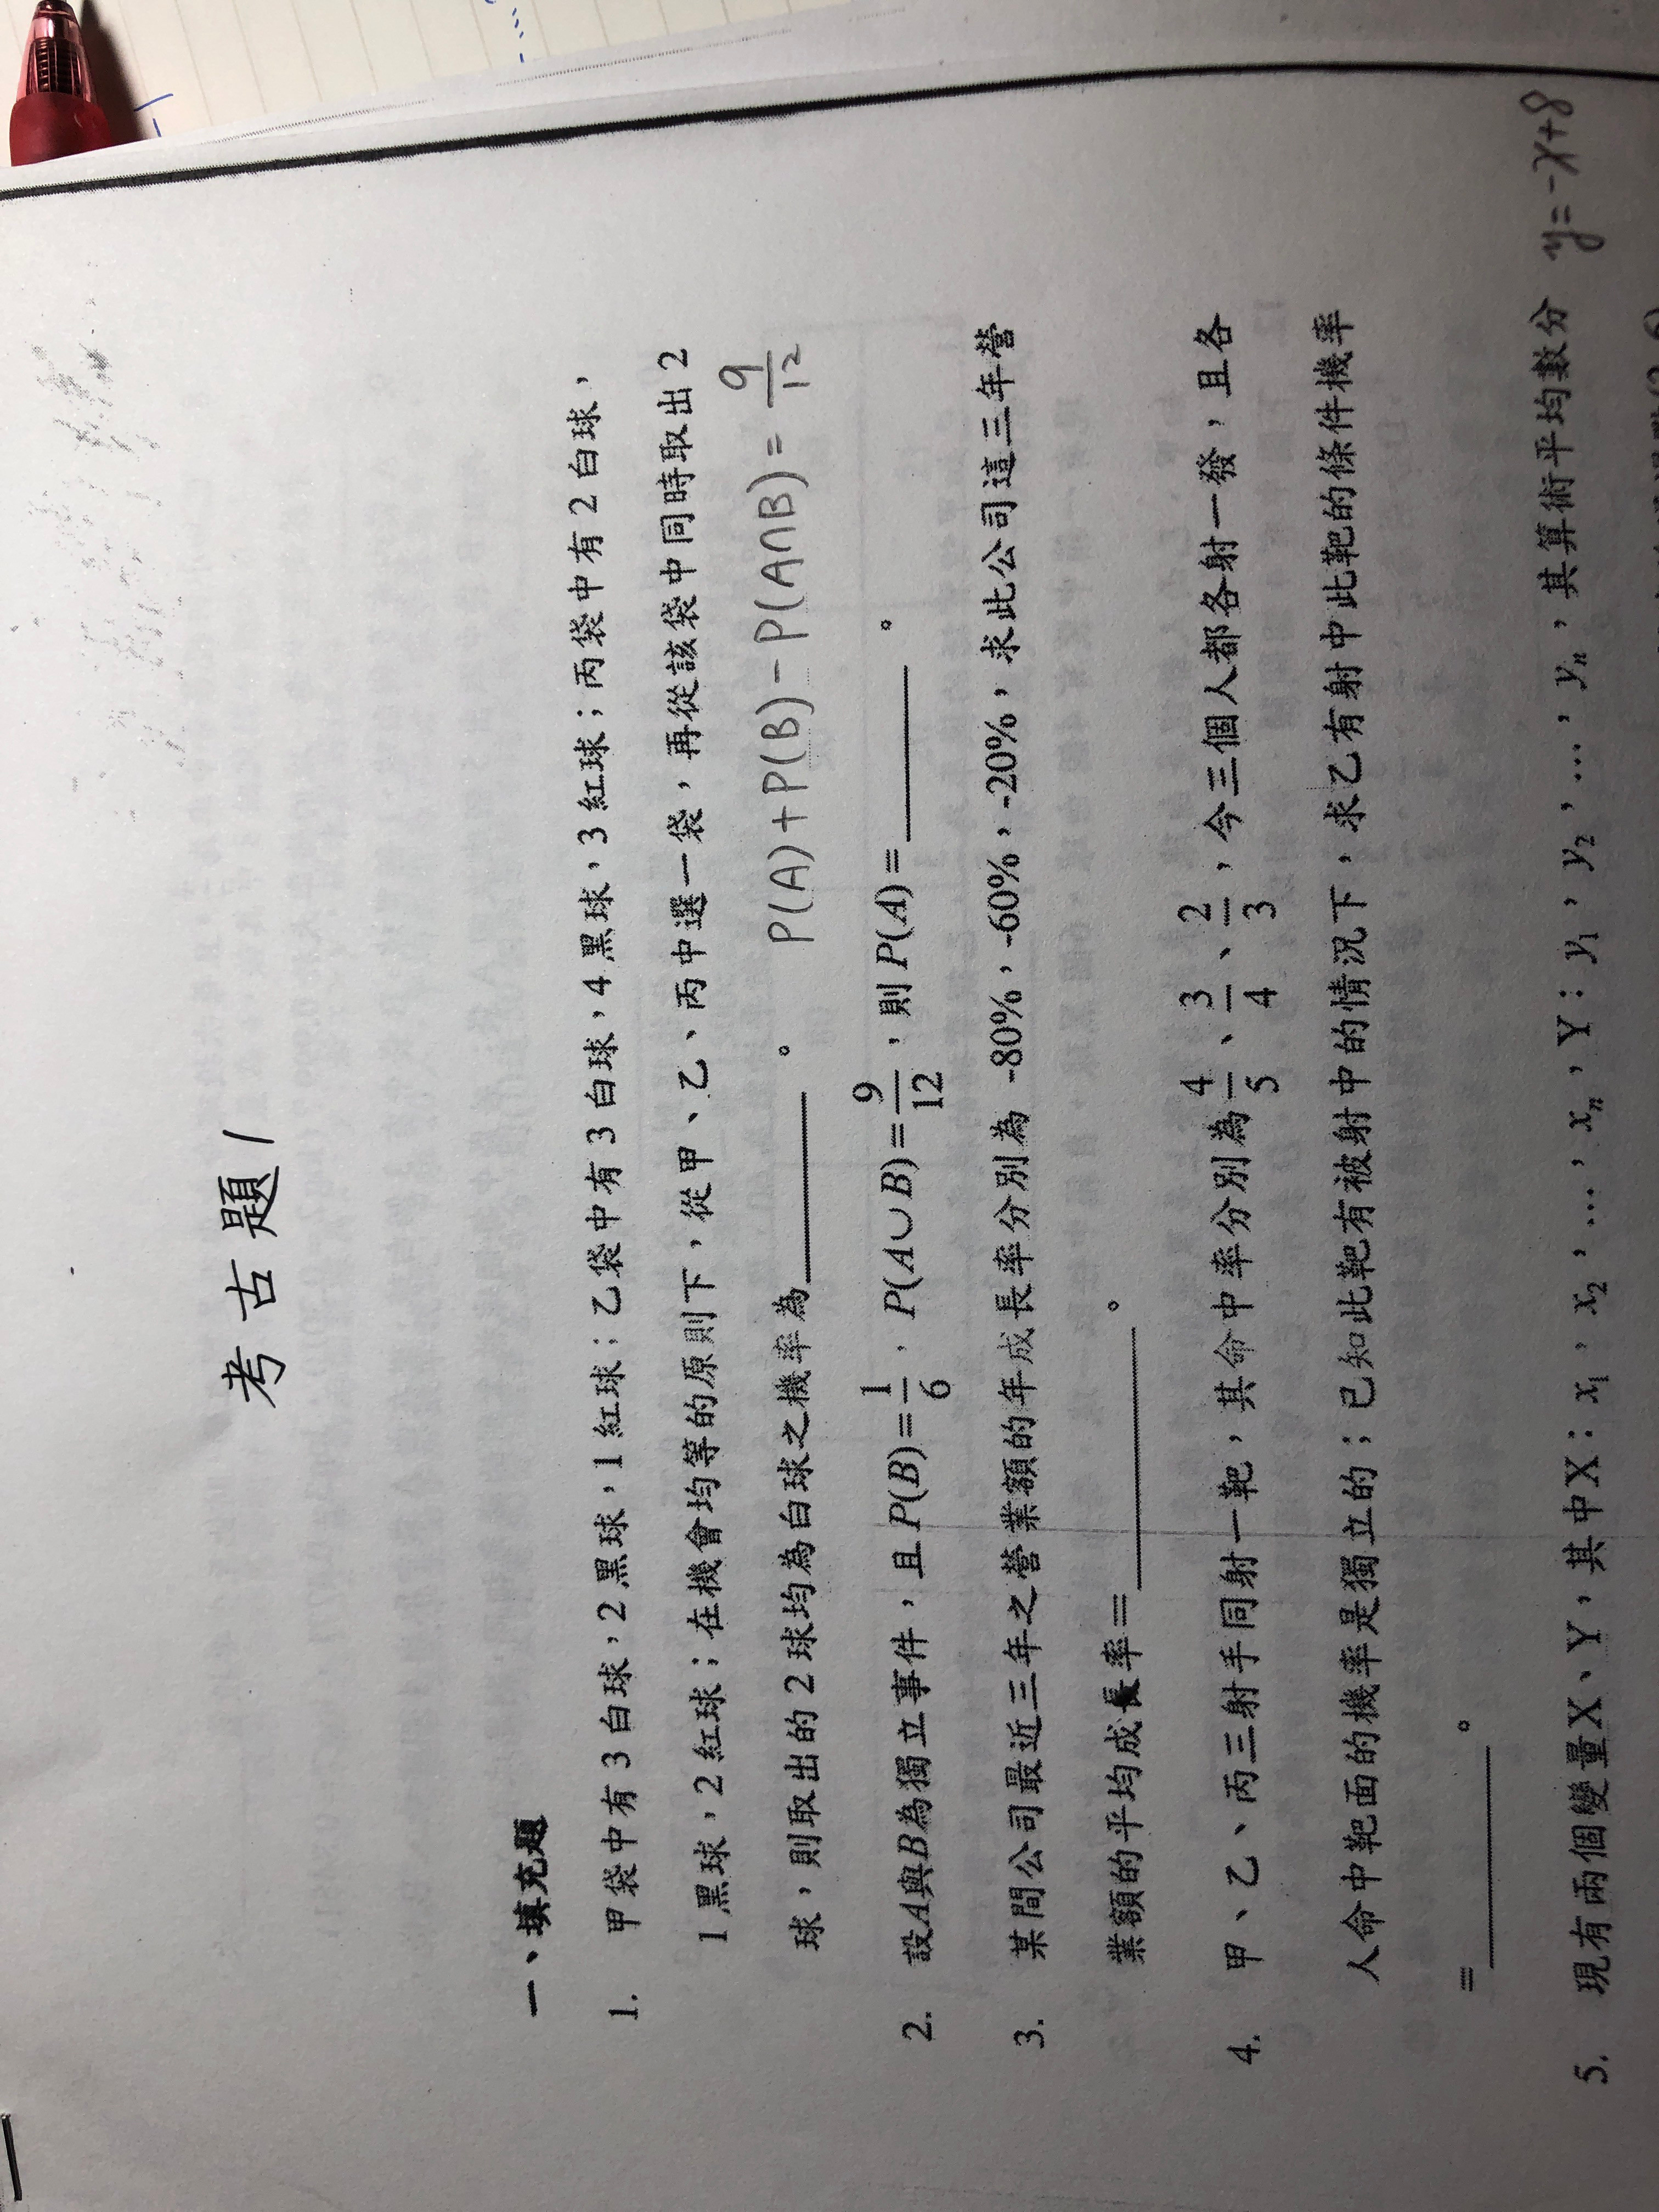 考古題1
一、填充題
1. 甲袋中有3白球，2黑球，1紅球；乙袋中有3白球，4黑球，3紅球；丙袋中有2白球，
1黑球，2紅球；在機會均等的原則下，從甲、乙、丙中選一袋，再從該袋中同時取出2
球，則取出的2球均為白球之機率為______。
P(A)+P(B)-P(A∩B)=9/12
2. 設A與B為獨立事件，且P(B)=1/6，P(A∪B)=9/12，則P(A)=______。
3. 某間公司最近三年之營業額的年成長率分別為 -80%，-60%，-20%，求此公司這三年營
業額的平均成長率=______。
4. 甲、乙、丙三射手同射一靶，其命中率分別為4/5、3/4、2/3，今三個人都各射一發，且各
人命中靶面的機率是獨立的；已知此靶有被射中的情況下，求乙有射中此靶的條件機率
=______。
5. 現有兩個變量X、Y，其中X：x₁，x₂，…，xₙ，Y：y₁，y₂，…，yₙ，其算術平均數分
y=-x+8